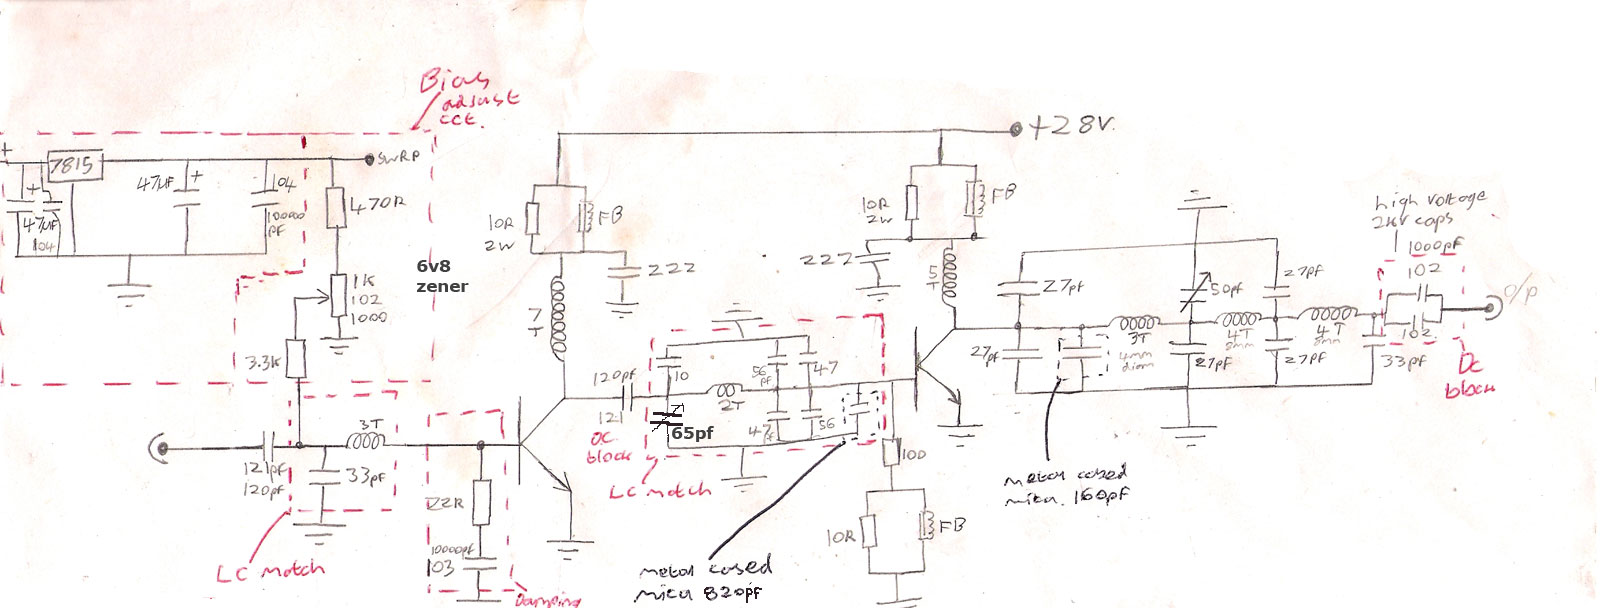 Bias
adjust
CCT.
+
7815
+
47µF
104
47µF
+
104
100000
pf
SWRP
470R
1K
102
1000
3.3K
6v8
zener
121pf
120pf
33pf
3T
LC match
22R
10000pf
103
Damping
10R
2W
FB
222
7
T
120pf
121
DC
block
10
65pf
2T
56
pf
47
47
56
LC match
metal cased
mica 820pf
100
10R
FB
+28V.
10R
2W
FB
222
5
T
27pf
27pf
3T
4mm
diam
metal cased
mica. 160pf
50pf
27pf
4T
8mm
27pf
27pf
4T
8mm
33pf
high voltage
2kv caps
1000pf
102
102
O/P
DC
block